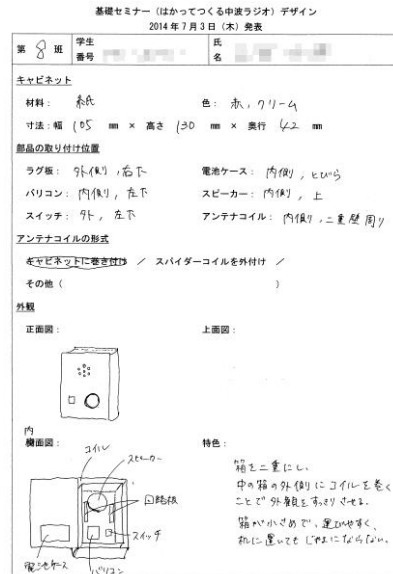 基礎セミナー（はかってつくる中波ラジオ）デザイン
2014年7月3日（木）発表
第 8 班 学生番号 氏名
キャビネット
材料： 色：赤,クリーム
寸法：幅 105 mm × 高さ 130 mm × 奥行 42 mm
部品の取り付け位置
ラグ板：外側,右下 電池ケース：内側,とびら
バリコン：内側,左下 スピーカー：内側,上
スイッチ：外,左下 アンテナコイル：内側,二重壁周り
アンテナコイルの形式
キャビネットに巻き付け ／ スパイダーコイルを外付け ／
その他（ ）
外観
正面図： 上面図：
内
側面図： 特色：
コイル
スピーカー
回路板
スイッチ
電池ケース
バリコン
箱を二重にし、
中の箱の外側にコイルを巻く
ことで外観をすっきりさせる。
箱が小さめで、運びやすく、
机に置いてもじゃまにならない。